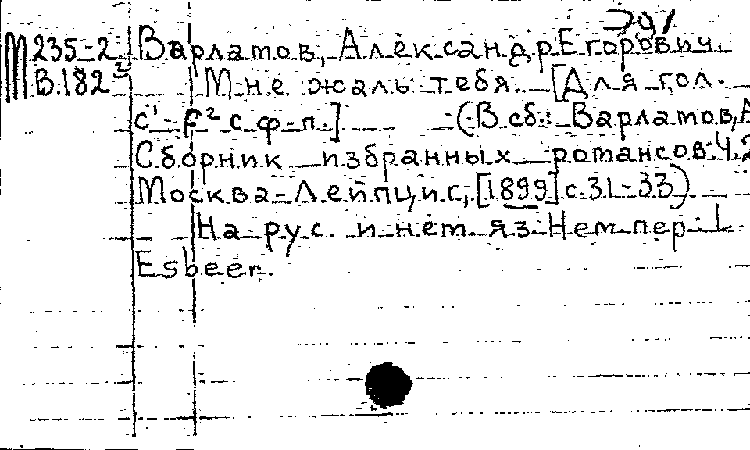 М 235-2 Варламов, Александр Егорович.
В.182 Мне жаль тебя. [Для гол.
с¹-f² с ф-п.] (В сб.: Варламов, А
Сборник избранных романсов. Ч.2
Москва-Лейпциг, [1899] с.31-33)
На рус. и нем. яз. Нем. пер.
Esbeer.